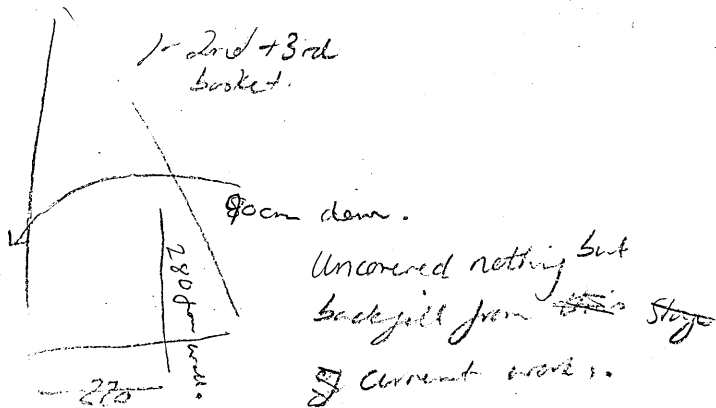 1- 2nd + 3rd
basket.
80cm down.
280 from wall.
270
Uncovered nothing but
backfill from this stage
of current works.